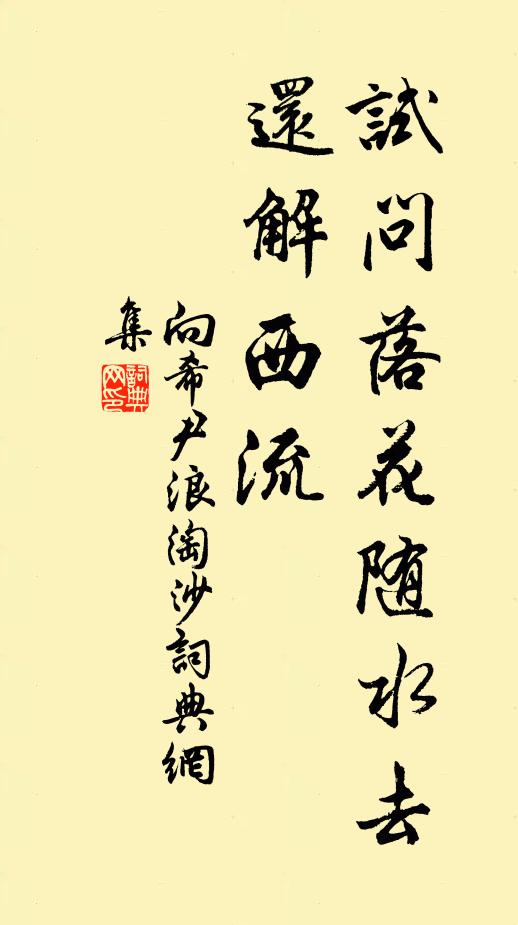 試問落花随水去
還解西流
向希尹浪淘沙詞典網
集
詞典
网印